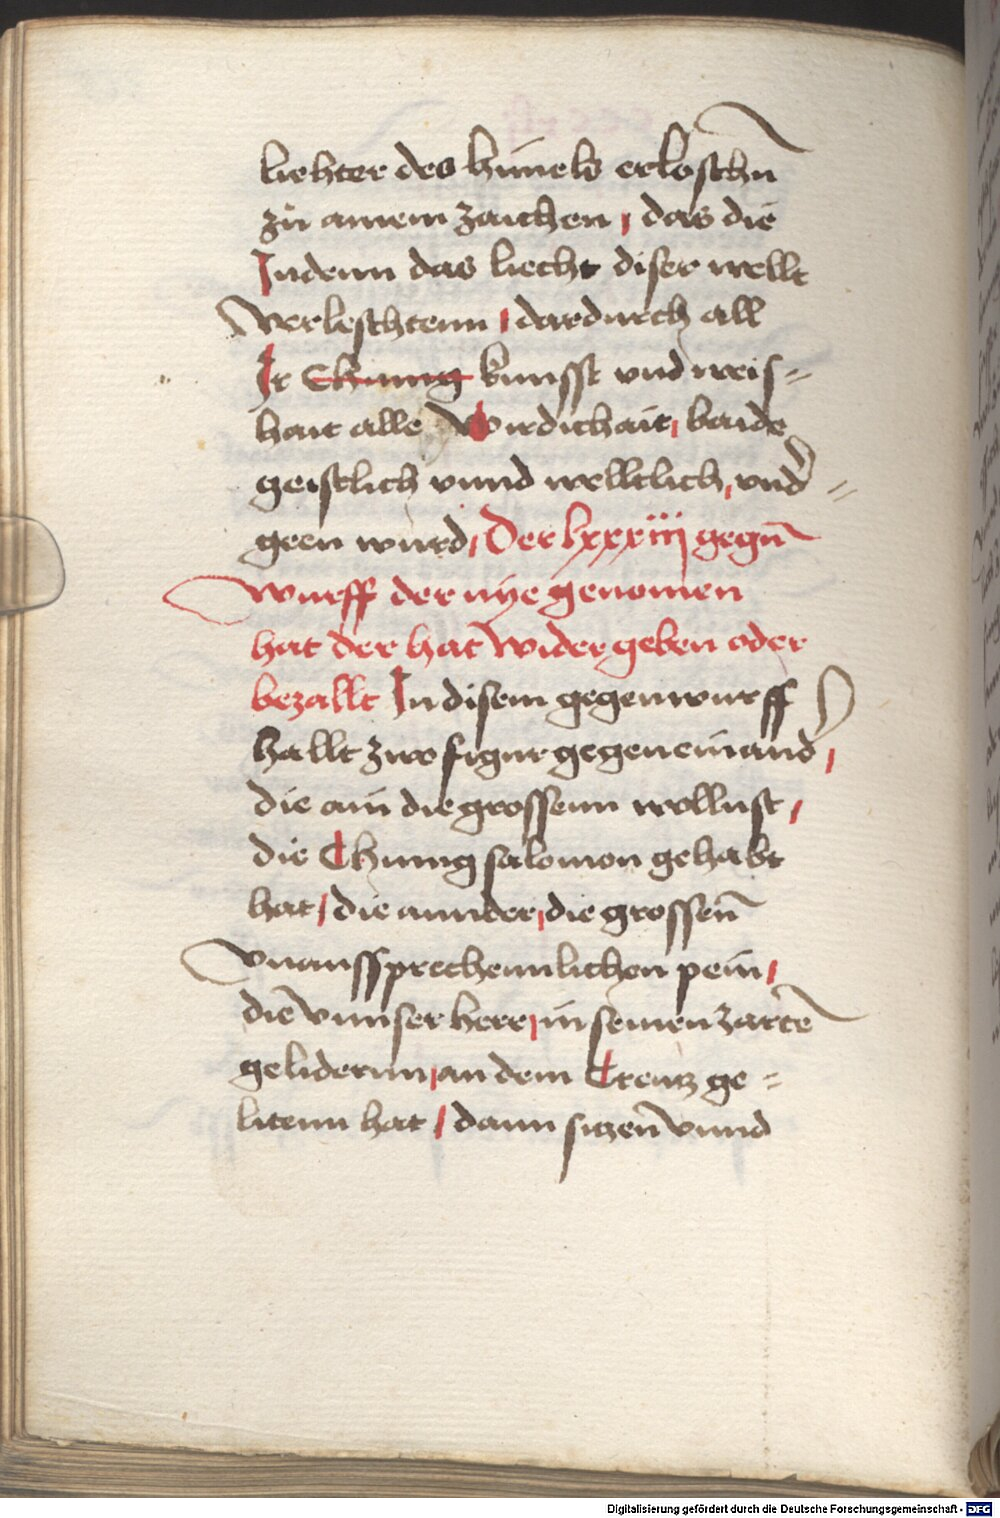 liehter des himels erloschn̄
zu ainem zaichen, das die
Indenn das liecht diser wellt
verleschtenn, dardurch all
Ir Chunig kunsst vnd weis-
hait alle wirdichait, baide
geistlich vnnd welltlich, vnd̄ =
geen wurd, Der lxxxiiij gegn̄
wurff der nye genomen
hat der hat wider geben oder
bezallt In disem gegenwurff
hallt zwo figur gegeneinand̄,
die ain die grossenn wollust,
die Chunig salomon gehabt
hat, die annder, die grossen̄
vnaussprechennlichen pein,
die vnnser herr, in seinen zartē
gelidernn, an dem Creutz ge =
litenn hat, dann sitzen̄ vnnd
Digitalisierung gefördert durch die Deutsche Forschungsgemeinschaft - DFG